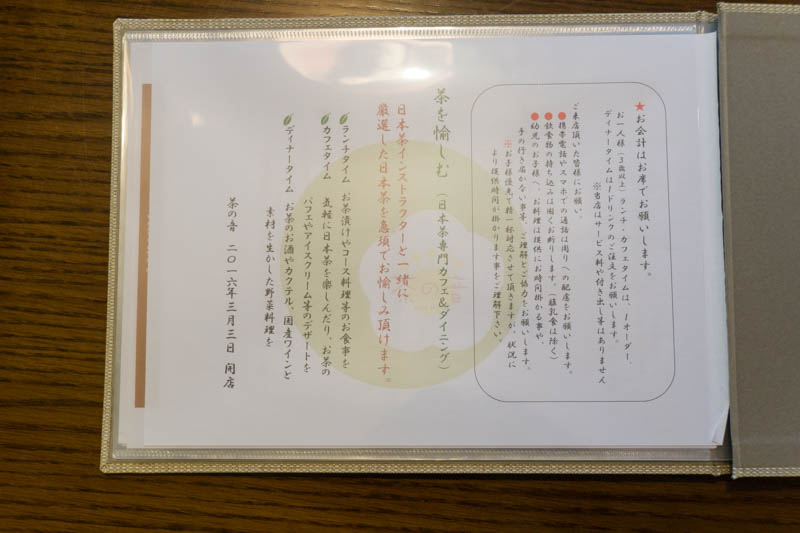 ★お会計はお席でお願いします。
お一人様(3歳以上)ランチ・カフェタイムは、1オーダー、
ディナータイムは1ドリンクのご注文をお願いします。
※当店はサービス料や付き出し等はありません
ご来店頂いた皆様にお願い。
●携帯電話やスマホでの通話は周りへの配慮をお願いします。
●飲食物の持ち込みは固くお断りします。(離乳食は除く)
●幼児のお子様へ、お料理は提供にお時間掛かる事や、
手の行き届かない事等、ご理解とご協力をお願いします。
※お子様優先で精一杯対応させて頂きますが、状況に
より提供時間が掛かります事をご理解下さい。
茶を愉しむ (日本茶専門カフェ&ダイニング)
日本茶インストラクターと一緒に
厳選した日本茶を急須でお愉しみ頂けます。
ランチタイム お茶漬けやコース料理等のお食事を
カフェタイム 気軽に日本茶を楽しんだり、お茶の
パフェやアイスクリーム等のデザートを
ディナータイム お茶のお酒やカクテル、国産ワインと
素材を生かした野菜料理を
茶の音 二〇一六年三月三日 開店